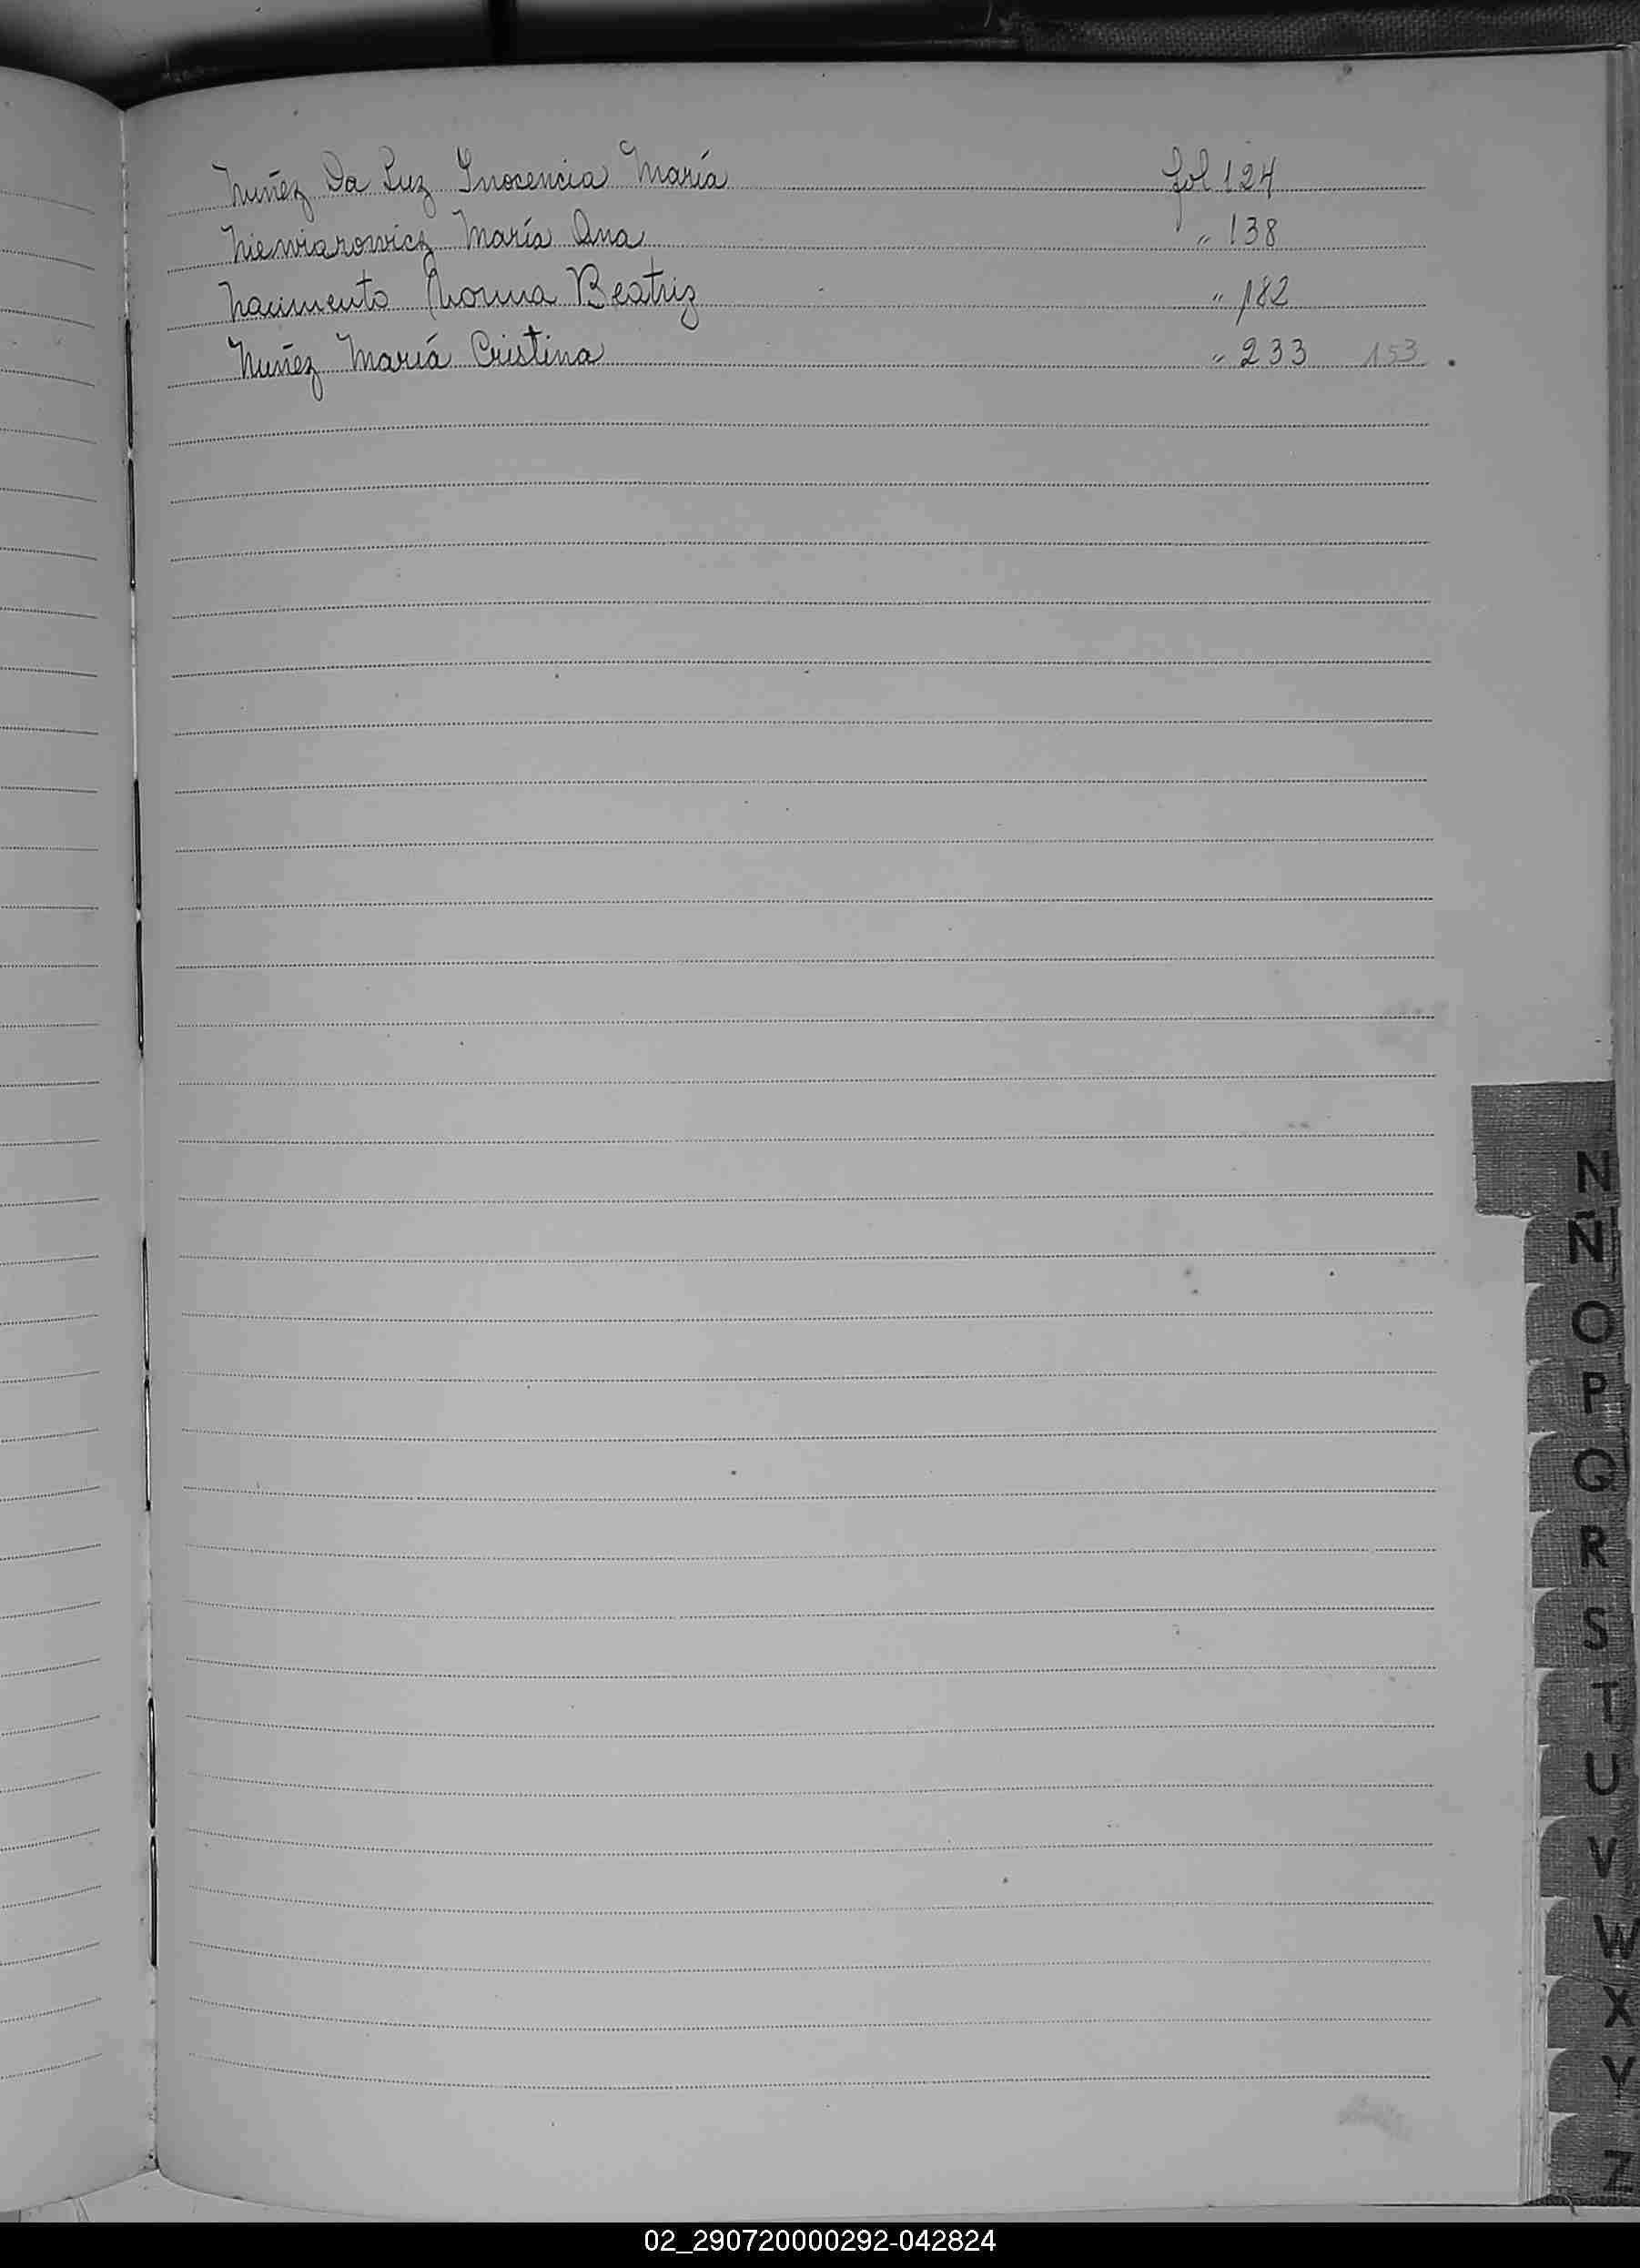 Nuñez Da Luz Inocencia María fol 124
Niewiarowicz María Ana " 138
Nacimento Norma Beatriz " 182
Nuñez María Cristina " 233 153
N
Ñ
O
P
Q
R
S
T
U
V
W
X
Y
Z
02_290720000292-042824